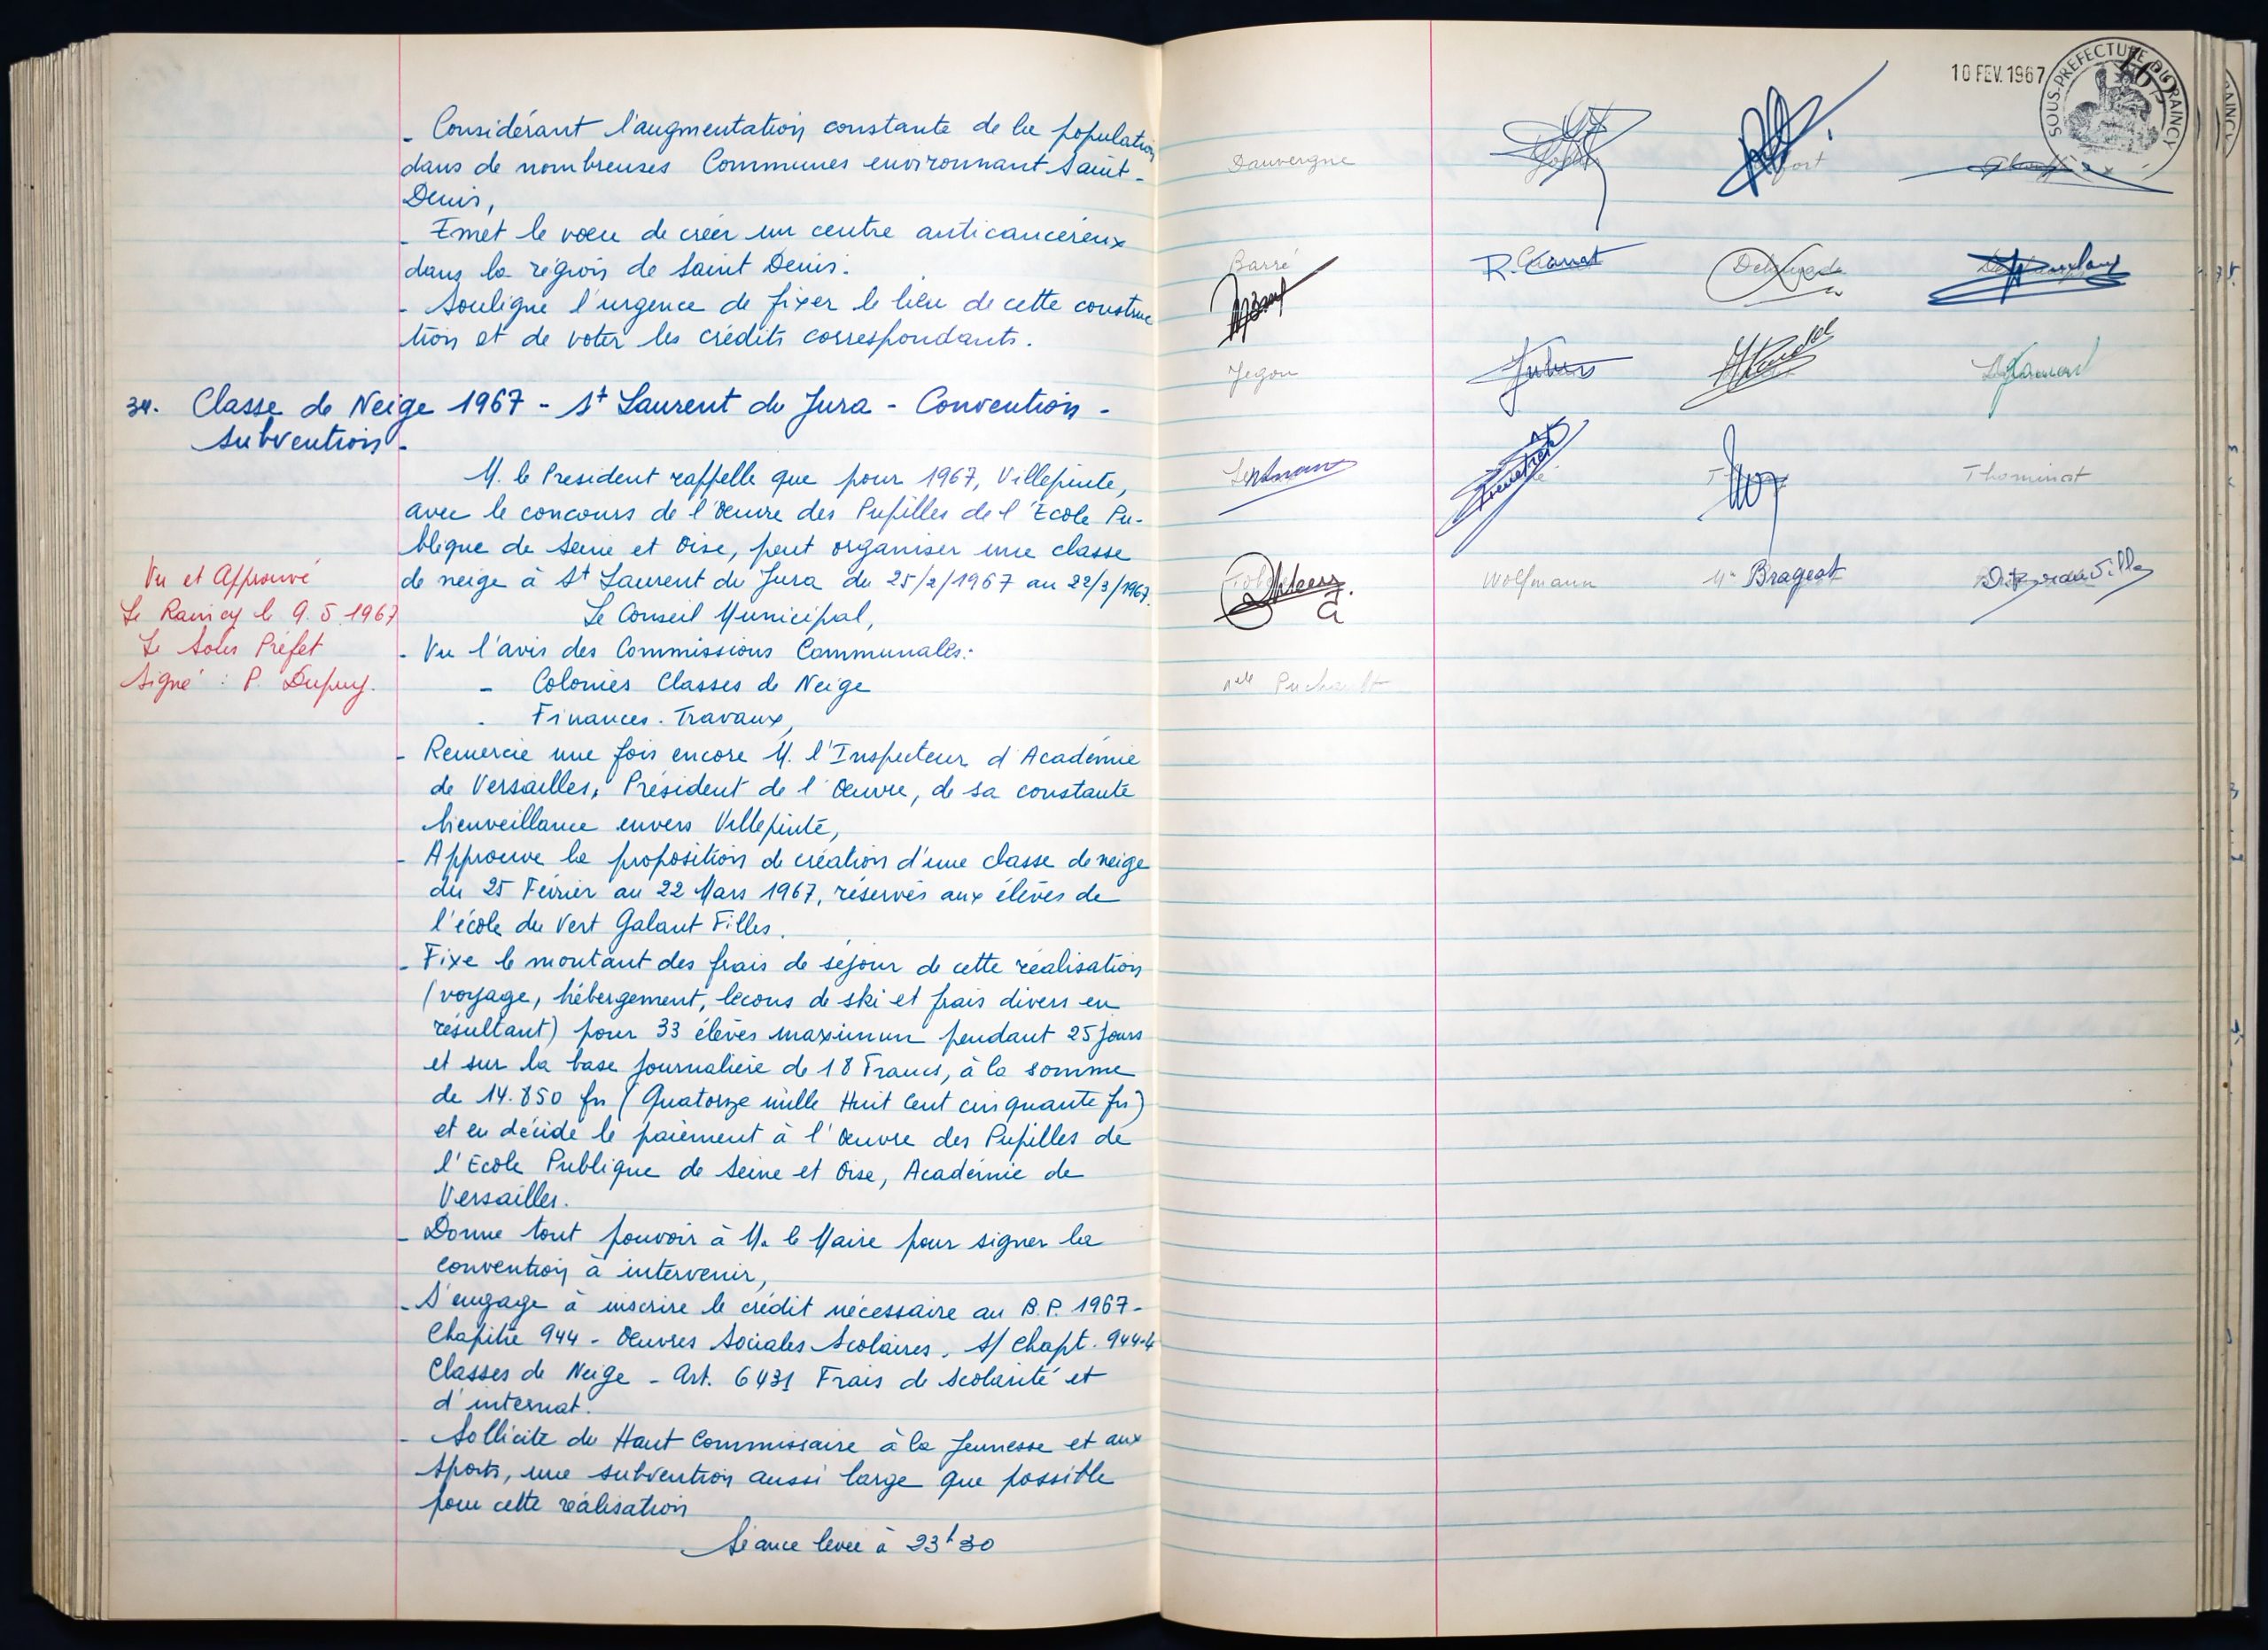 - Considérant l'augmentation constante de la population
dans de nombreuses Communes environnant Saint-
Denis,
- Emet le voeu de créer un centre anticancéreux
dans la région de Saint Denis.
- Souligne l'urgence de fixer le lieu de cette construc
tion et de voter les crédits correspondants.
34. Classe de Neige 1967 - St Laurent du Jura - Convention -
Subvention -
M. le Président rappelle que pour 1967, Villepinte,
avec le concours de l'Oeuvre des Pupilles de l'Ecole Pu-
blique de Seine et Oise, peut organiser une classe
de neige à St Laurent du Jura du 25/2/1967 au 22/3/1967.
Le Conseil Municipal,
- Vu l'avis des Commissions Communales:
- Colonies Classes de Neige
- Finances. Travaux,
- Remercie une fois encore M. l'Inspecteur d'Académie
de Versailles, Président de l'Oeuvre, de sa constante
bienveillance envers Villepinte,
- Approuve la proposition de création d'une classe de neige
du 25 Février au 22 Mars 1967, réservés aux élèves de
l'école du Vert Galant Filles.
- Fixe le montant des frais de séjour de cette réalisation
(voyage, hébergement, lecons de ski et frais divers en
résultant) pour 33 élèves maximum pendant 25 jours
et sur la base journalière de 18 Francs, à la somme
de 14.850 frs (Quatorze mille Huit Cent cinquante frs)
et en décide le paiement à l'Oeuvre des Pupilles de
l'Ecole Publique de Seine et Oise, Académie de
Versailles.
- Donne tout pouvoir à M. le Maire pour signer la
convention à intervenir,
- S'engage à inscrire le crédit nécessaire au B.P. 1967-
Chapitre 944 - Oeuvres Sociales Scolaires. S/ Chapt. 944-4
Classes de Neige - Art. 6431 Frais de Scolarité et
d'internat.
- Sollicite du Haut Commissaire à la Jeunesse et aux
Sports, une subvention aussi large que possible
pour cette réalisation
Séance levée à 23h30
Vu et Approuvé
Le Raincy le 9.5.1967
Le Sous Préfet
Signé : P. Dupuy.
10 FEV. 1967
SOUS-PREFECTURE DU RAINCY
Dauvergne
Barré
R. Canat
Jegou
Thominot
Wolfmann
Me Brageot